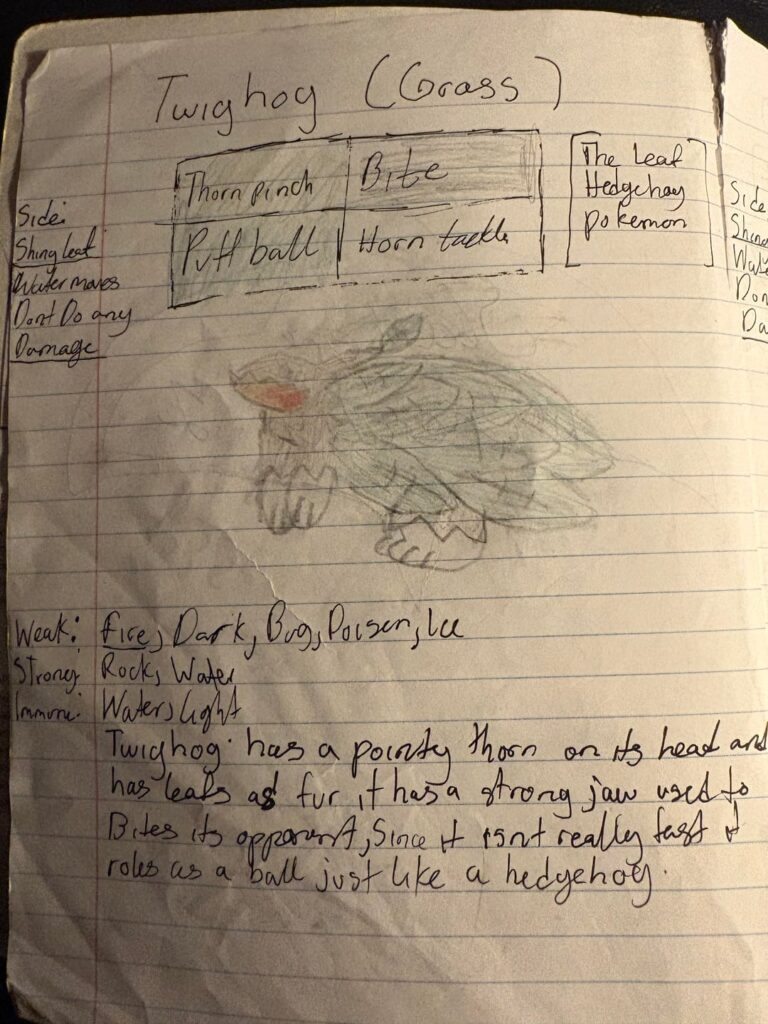 Twighog (Grass)
Thorn pinch Bite
Puff ball Horn tackle
The Leaf
Hedgehog
pokemon
Side:
Shing leaf
Water moves
Dont Do any
Damage
Side
Wate
Don
Da
Weak: Fire, Dark, Bug, Poisen, Ice
Strong: Rock, Water
Immune: Water, light
Twighog has a pointy thorn on its head and
has leafs as fur, it has a strong jaw used to
Bites its opponent, Since it isnt really fast it
roles as a ball just like a hedgehog.